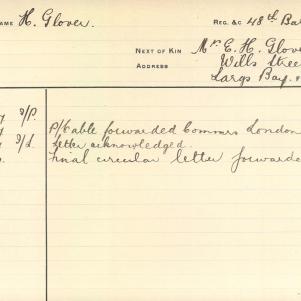 NAME H. Glover. REG. &C 48th Bat
NEXT OF KIN Mr. E. H. Glov
ADDRESS Wills Stree
Largs Bay.
P/Cable forwarded Commrs London
Letter acknowledged.
Final circular letter forwarde